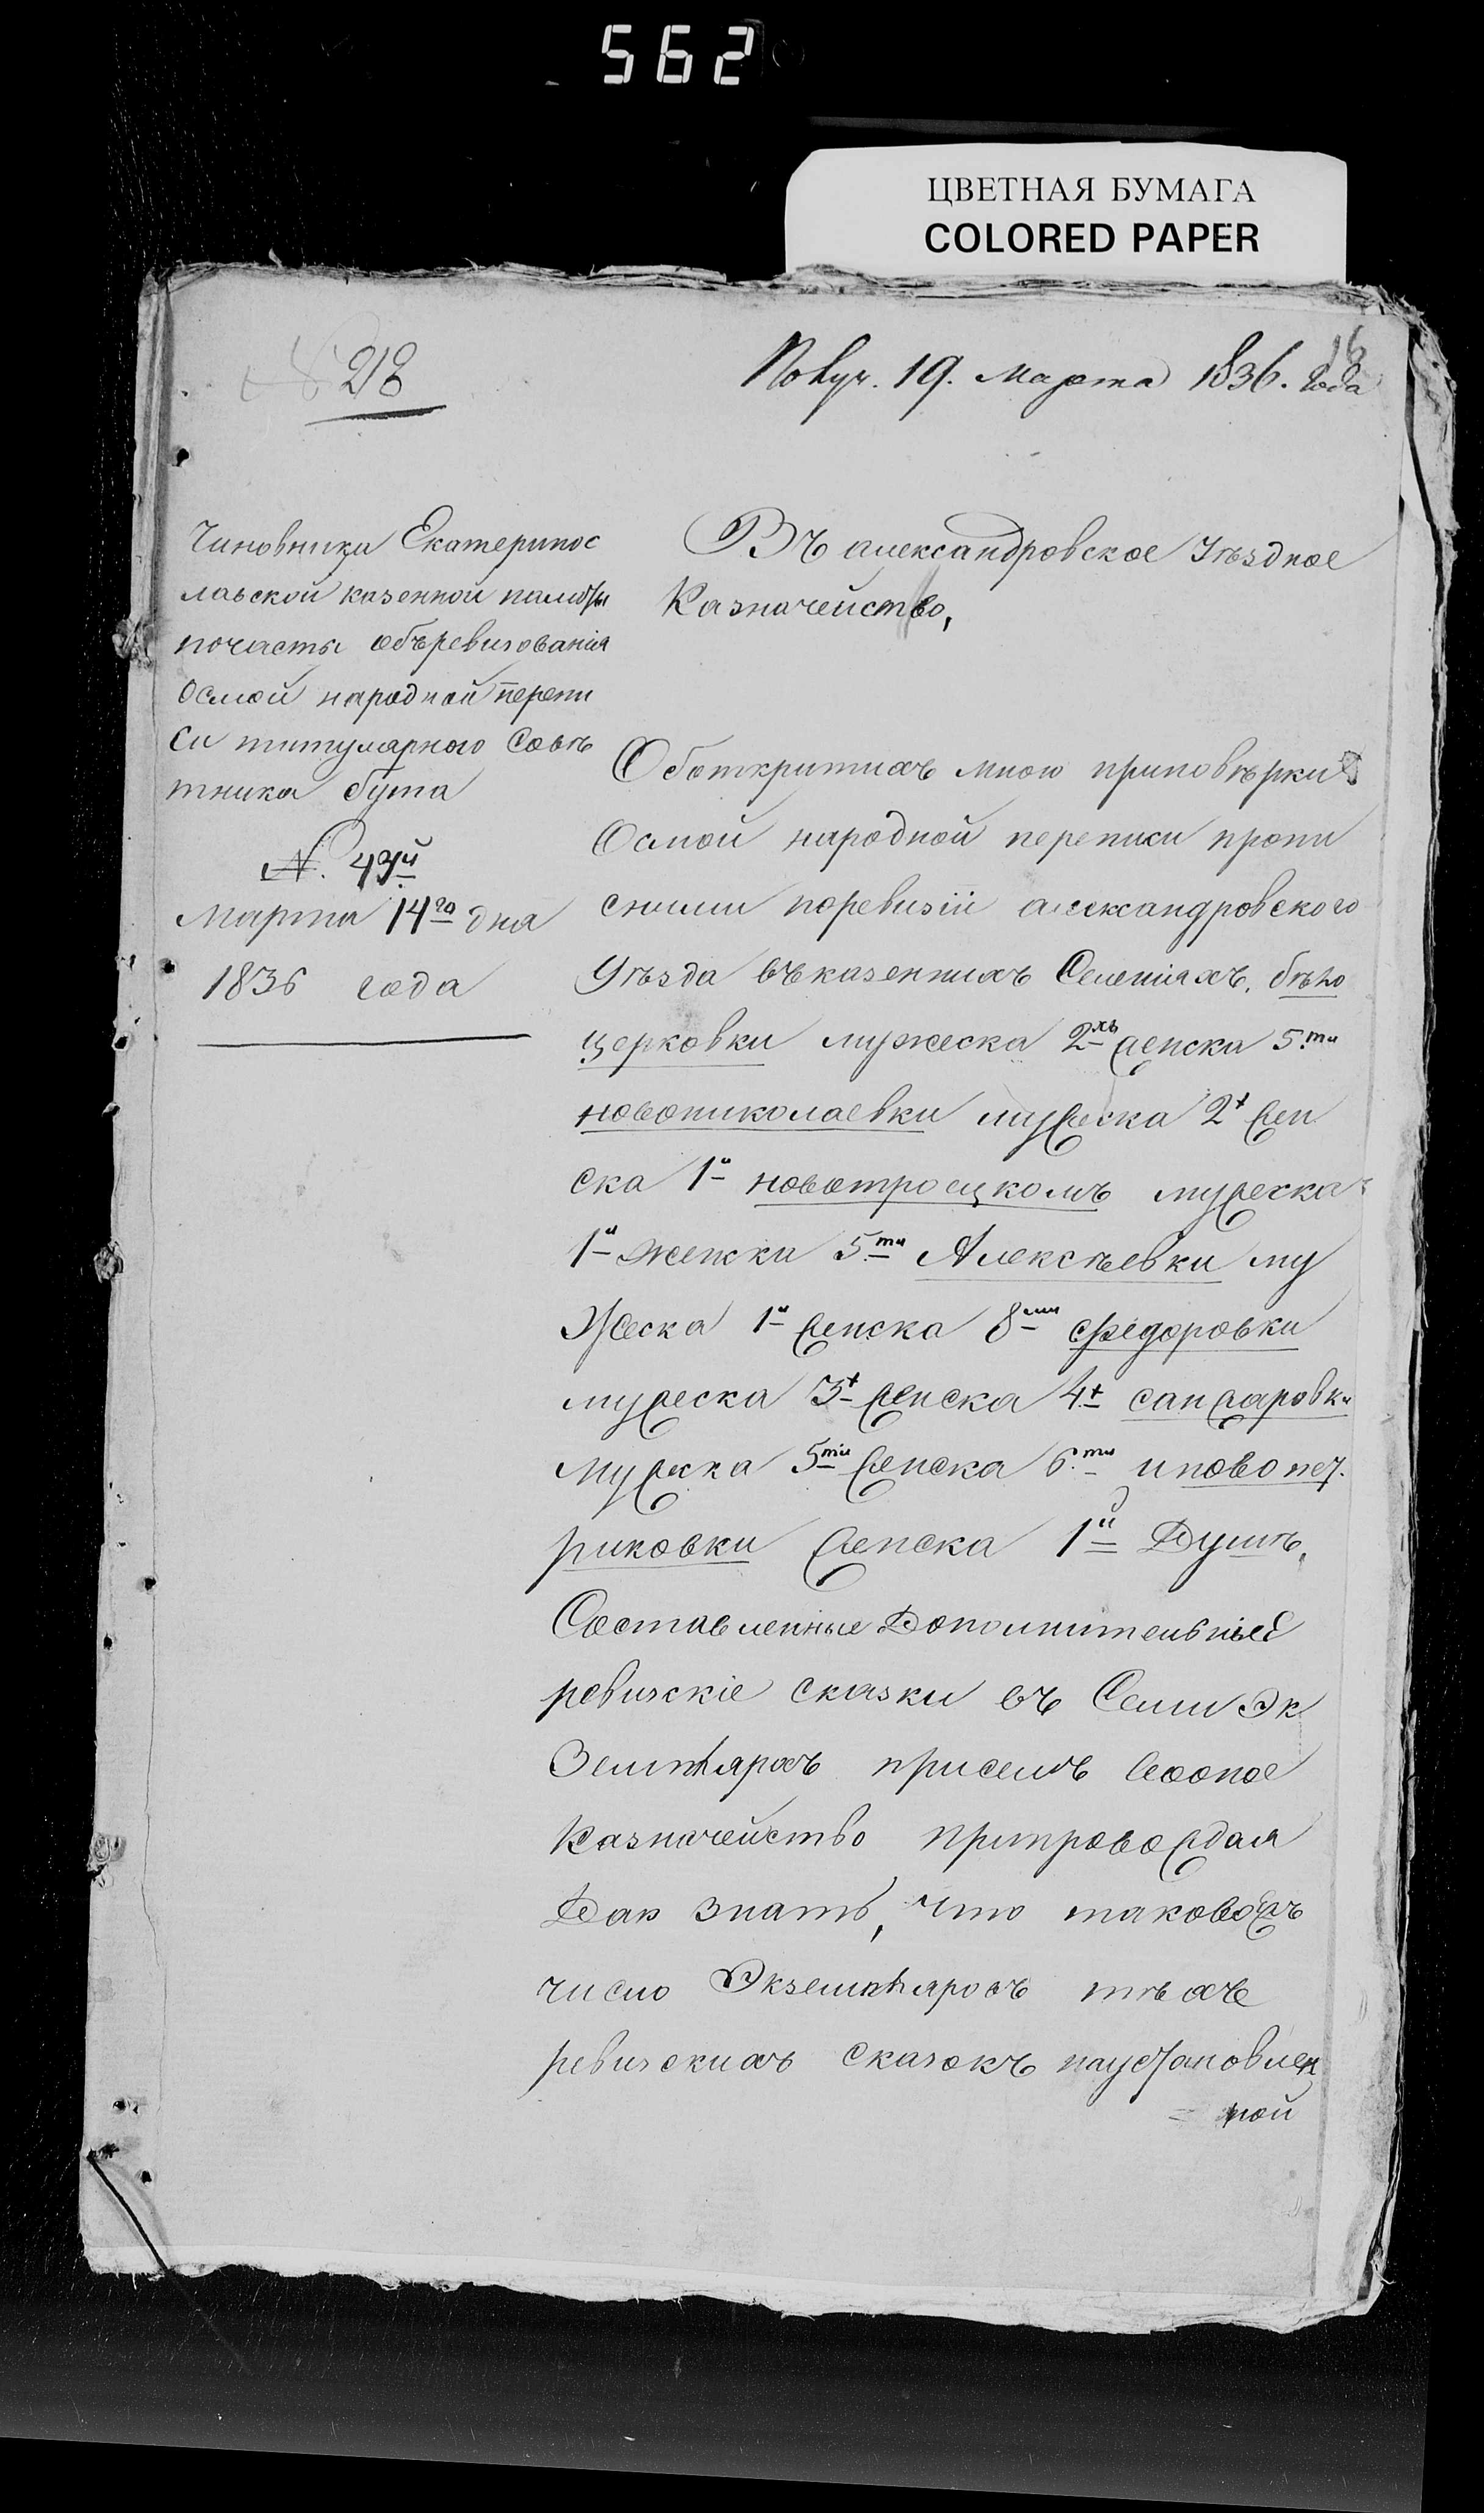 562
ЦВЕТНАЯ БУМАГА
COLORED PAPER
16
218
Получ. 19. Марта 1836. года
Чиновника Екатеринос
лавской казенной палаты
почасти объревизованія
Осмой народной перепи
си титулярного Совѣ
тника бута
№. 43й
Марта 14го дня
1836 года
Въ александровское Уѣздное
Казначейство,
Оботкритихъ мною приповѣрки
Осмой народной переписи пропи
сними поревизіи александровского
Уѣзда въказеннихъ Селеніяхъ. бѣло
церковки мужеска 2хъ женска 5ти
новониколаевки мужеска 2х жен
ска 1й новотроецкомъ мужеска
1й женски 5ти Алексѣевки му
жеска 1й женска 8ми федоровки
мужеска 3х женска 4х санжаровки
мужска 5ти женска 6ти иновопет
риковки женска 1й Душѣ,
Составленные Дополнительные
ревизскіе сказки въ Семи Эк
Земплярахъ присемъ воное
Казначейство припровождая
Даю знать, что таковожъ
число Экземпляровъ тѣхъ
ревизскихъ сказокъ наустановлен
= ной